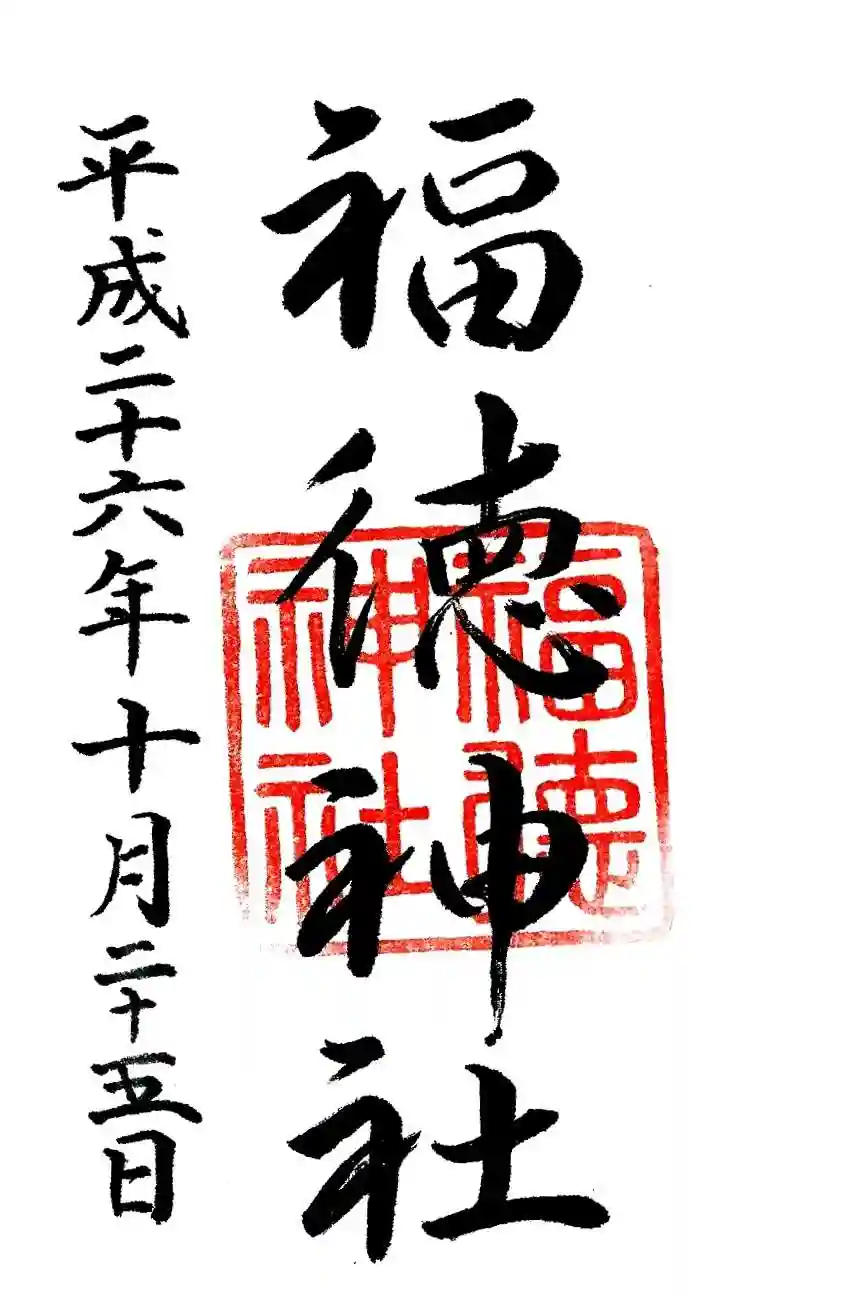 福徳神社
平成二十六年十月二十五日
福德
神社